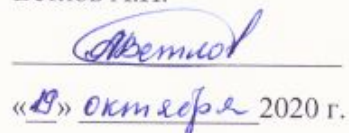 АВетлов
«19» октября 2020 г.